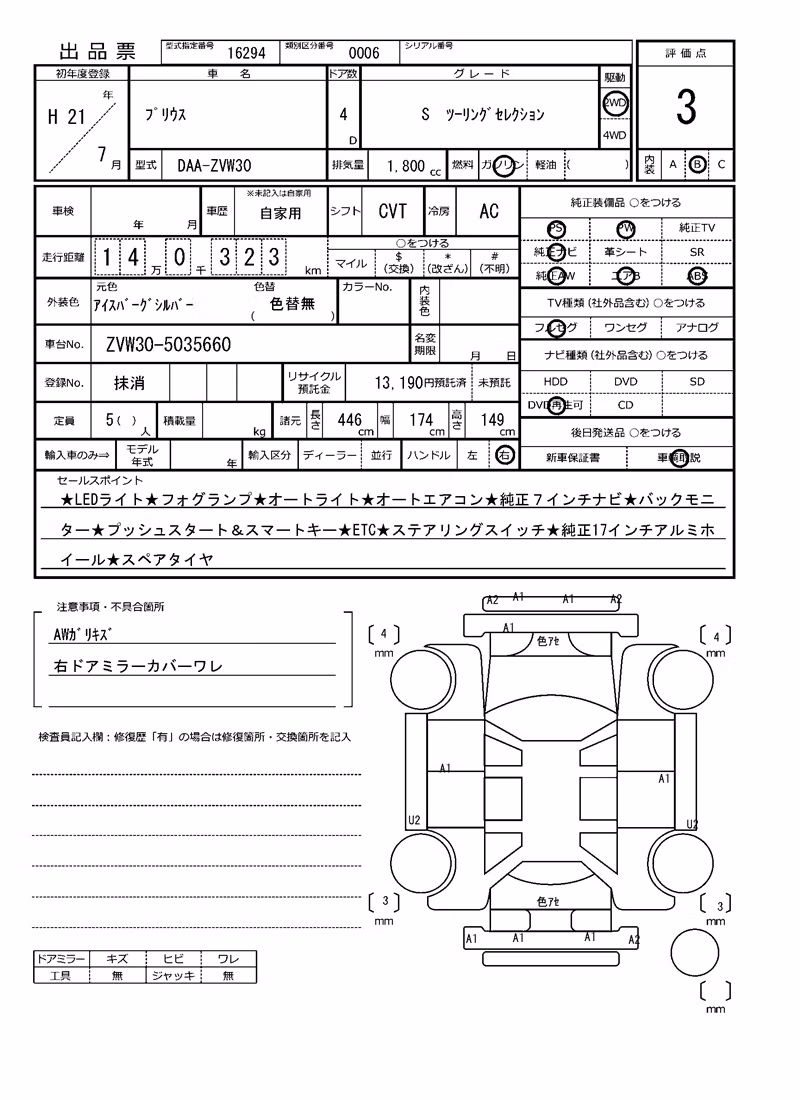 出品票 型式指定番号 16294 類別区分番号 0006 シリアル番号
評価点
3
内装 A B C
初年度登録 車名 ドア数 グレード 駆動
H 21 年 7 月 ﾌﾟﾘｳｽ 4 D S ﾂｰﾘﾝｸﾞｾﾚｸｼｮﾝ 2WD
4WD
型式 DAA-ZVW30 排気量 1,800 cc 燃料 ガソリン 軽油 ( )
車検 年 月 車歴 ※未記入は自家用 自家用 シフト CVT 冷房 AC
走行距離 14万0千323 km ○をつける
マイル $(交換) *(改ざん) #(不明)
外装色 元色 ｱｲｽﾊﾞｰｸﾞｼﾙﾊﾞｰ 色替 ( 色替無 ) カラーNo. 内装色
車台No. ZVW30-5035660 名変期限 月 日
登録No. 抹消 リサイクル預託金 13,190円預託済 未預託
定員 5( ) 人 積載量 kg 諸元 長さ 446 cm 幅 174 cm 高さ 149 cm
輸入車のみ⇒ モデル年式 年 輸入区分 ディーラー 並行 ハンドル 左 右
純正装備品 ○をつける
PS PW 純正TV
純正ナビ 革シート SR
純正AW エアB ABS
TV種類(社外品含む)○をつける
フルセグ ワンセグ アナログ
ナビ種類(社外品含む)○をつける
HDD DVD SD
DVD再生可 CD
後日発送品 ○をつける
新車保証書 車輌取説
セールスポイント
★LEDライト★フォグランプ★オートライト★オートエアコン★純正７インチナビ★バックモニ
ター★プッシュスタート＆スマートキー★ETC★ステアリングスイッチ★純正17インチアルミホ
イール★スペアタイヤ
注意事項・不具合箇所
AWｶﾞﾘｷｽﾞ
右ドアミラーカバーワレ
検査員記入欄：修復歴「有」の場合は修復箇所・交換箇所を記入
ドアミラー キズ ヒビ ワレ
工具 無 ジャッキ 無
A2 A1 A1 A2
A1
色ｱｾ
4 mm
4 mm
A1
A1
U2
U2
色ｱｾ
3 mm
3 mm
A1 A1 A1 A2
mm